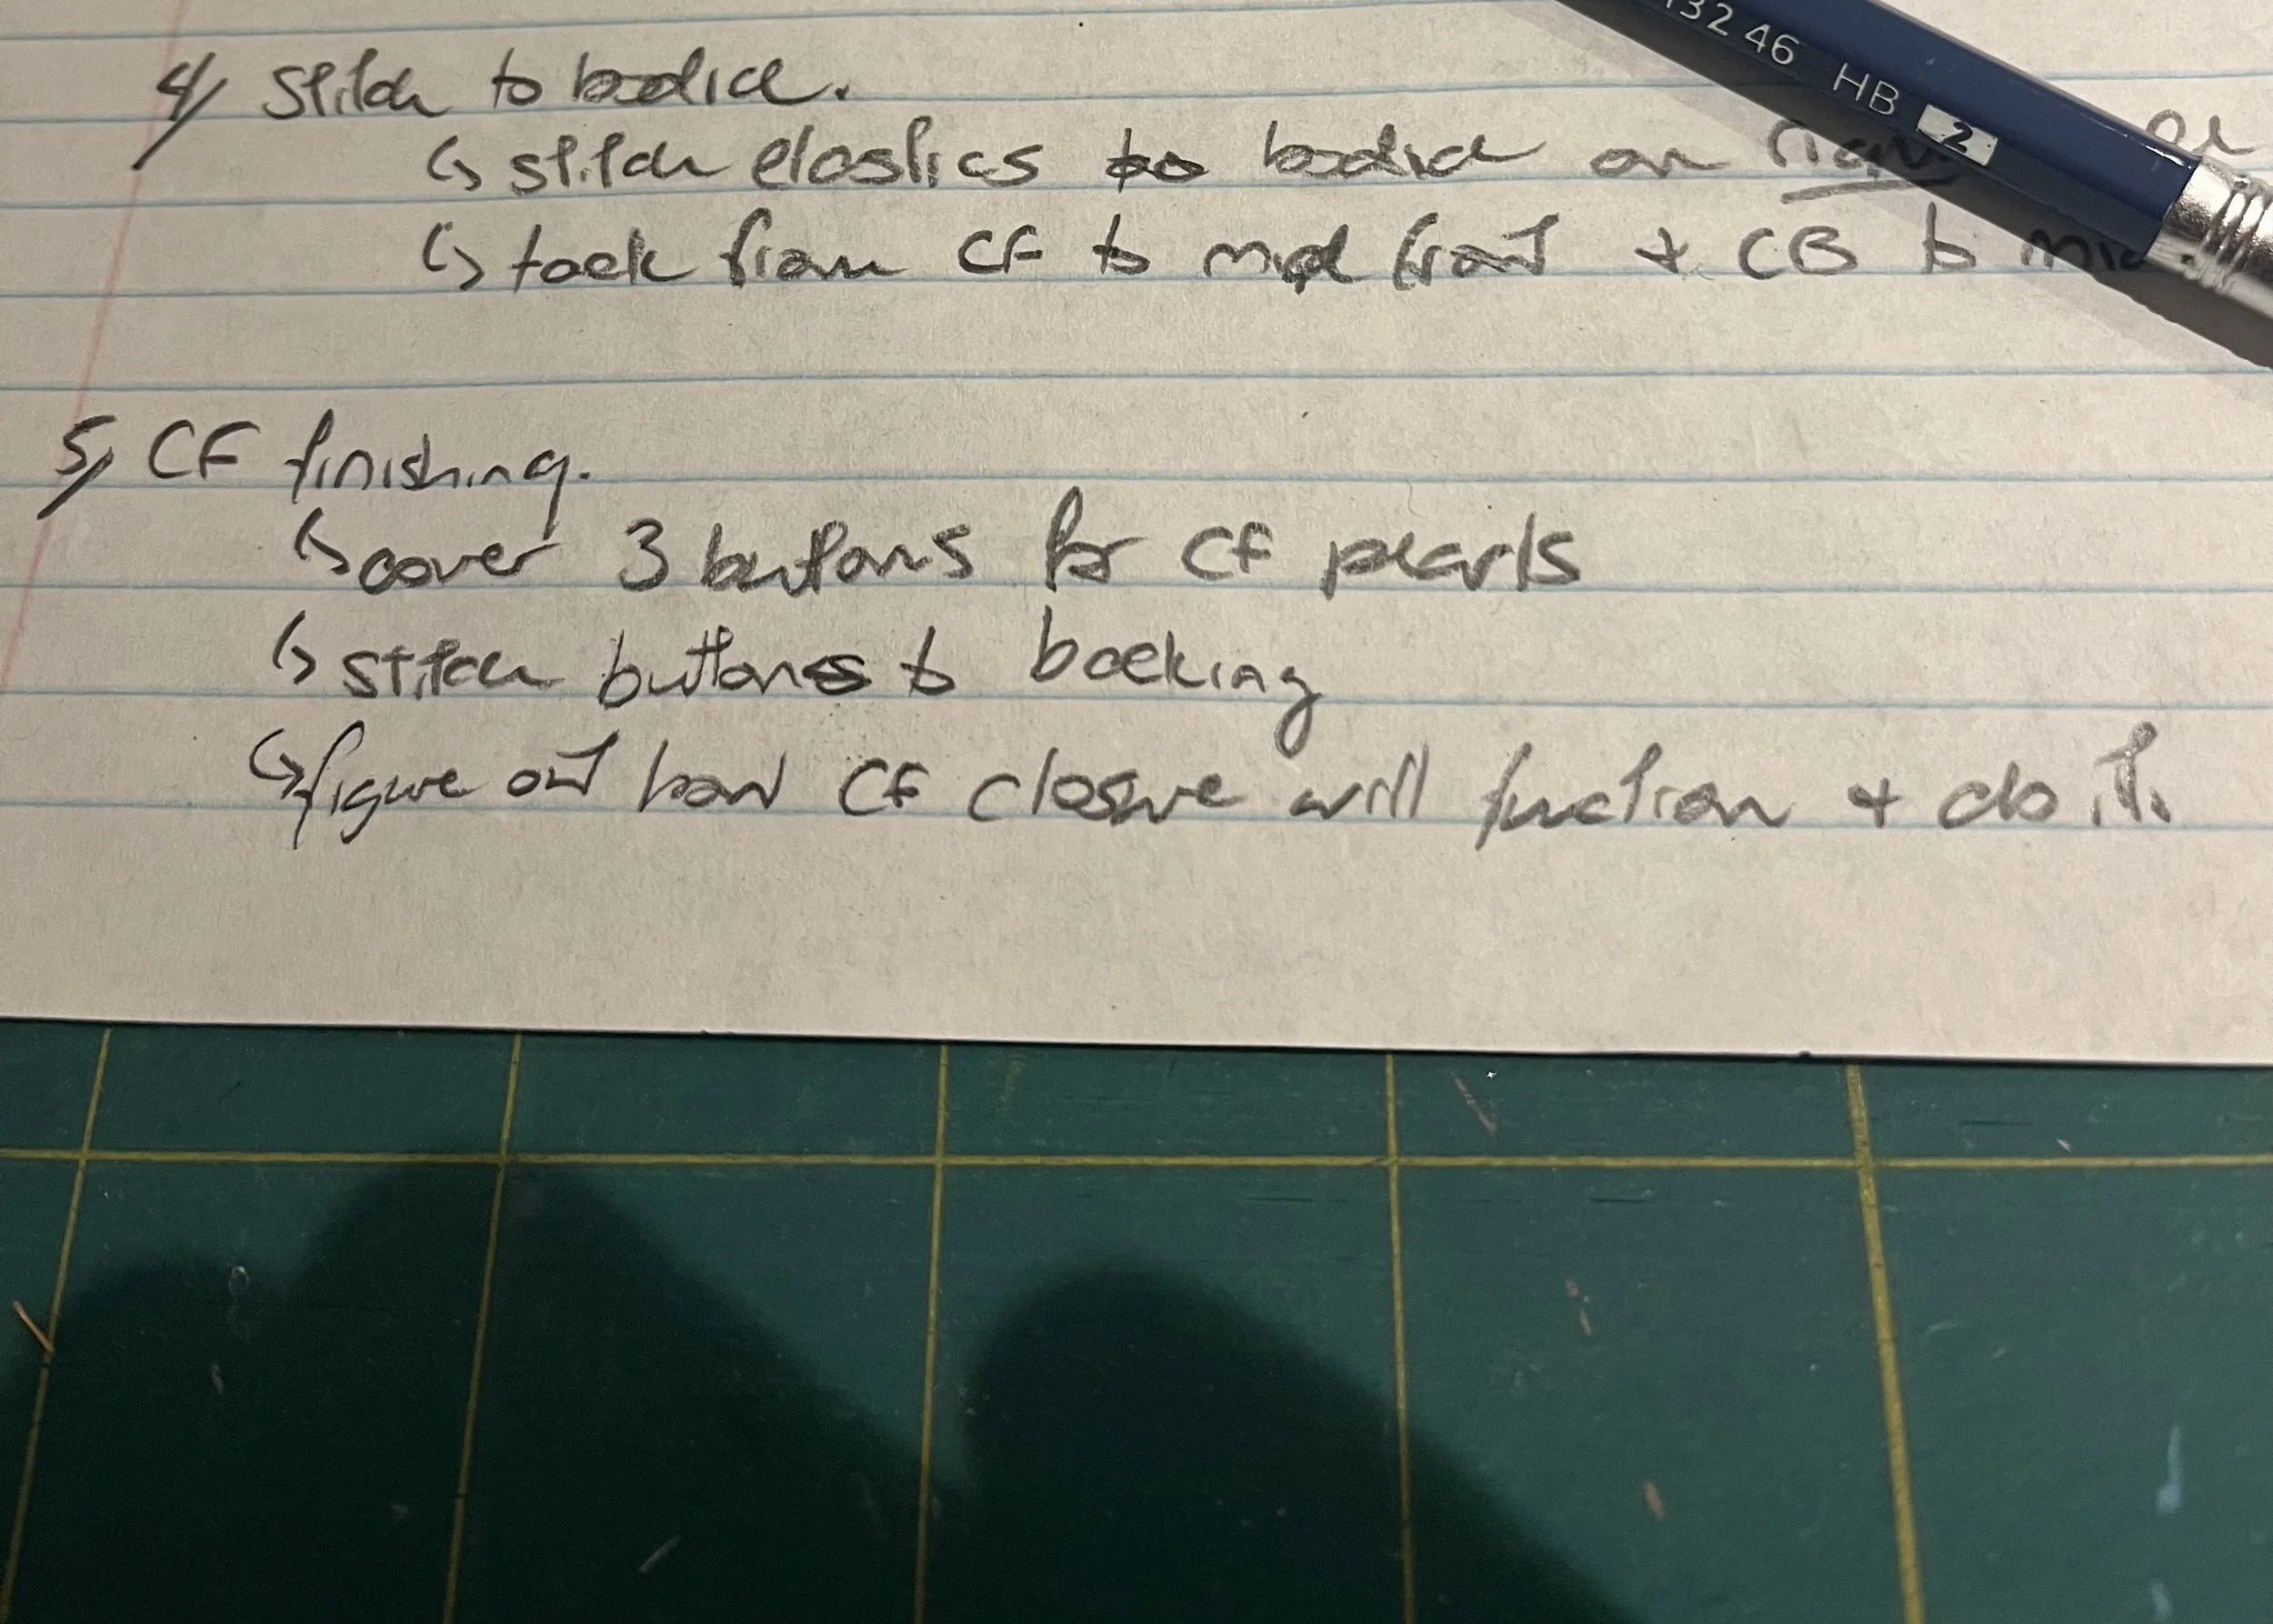 13246 HB 2
4/ Stitch to bodice.
↳ stitch elastics to bodice on
↳ tack from CF to mid front + CB to
5/ CF finishing.
↳ cover 3 buttons for CF pearls
↳ stitch buttons to backing
↳ figure out how CF closure will function + do it.